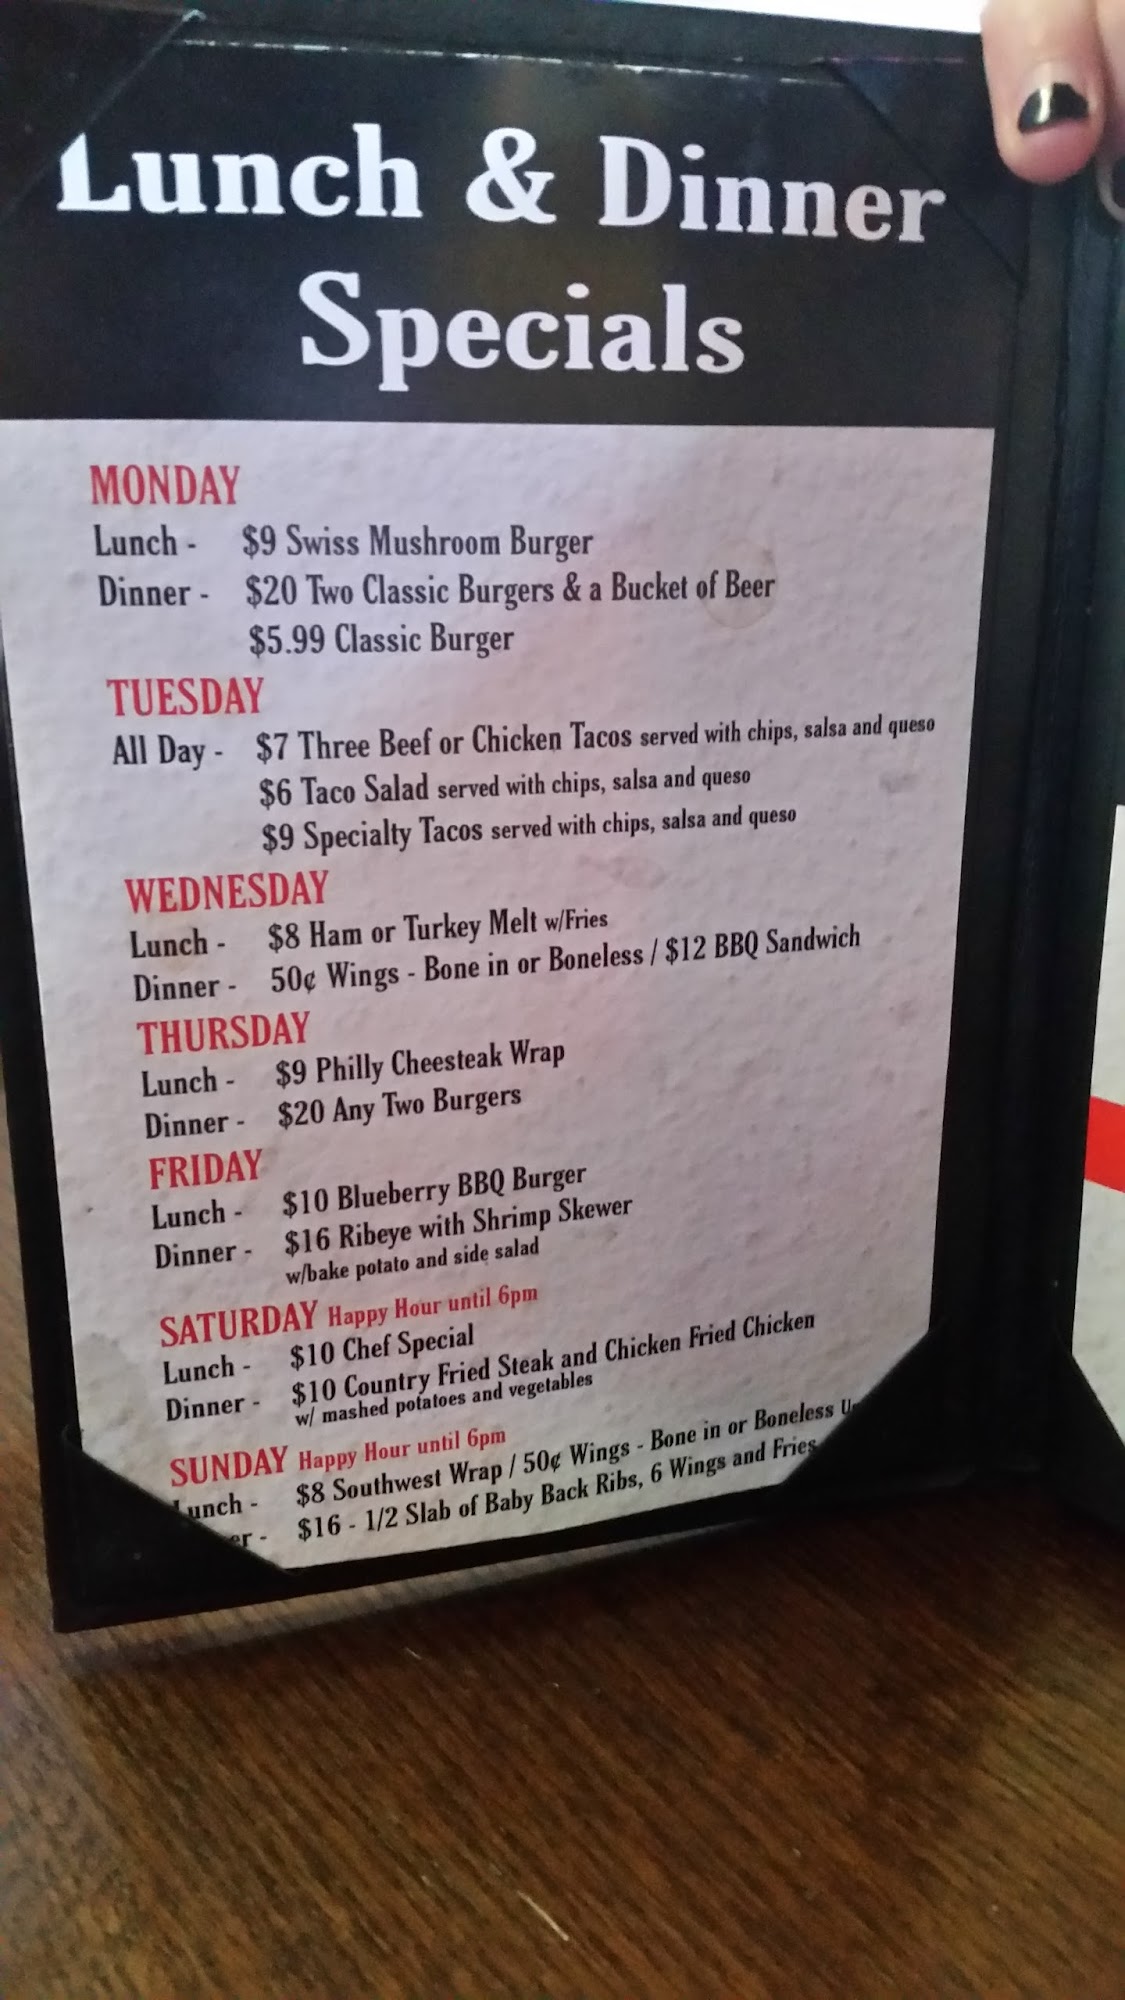 Lunch & Dinner
Specials
MONDAY
Lunch - $9 Swiss Mushroom Burger
Dinner - $20 Two Classic Burgers & a Bucket of Beer
$5.99 Classic Burger
TUESDAY
All Day - $7 Three Beef or Chicken Tacos served with chips, salsa and queso
$6 Taco Salad served with chips, salsa and queso
$9 Specialty Tacos served with chips, salsa and queso
WEDNESDAY
Lunch - $8 Ham or Turkey Melt w/Fries
Dinner - 50¢ Wings - Bone in or Boneless / $12 BBQ Sandwich
THURSDAY
Lunch - $9 Philly Cheesteak Wrap
Dinner - $20 Any Two Burgers
FRIDAY
Lunch - $10 Blueberry BBQ Burger
Dinner - $16 Ribeye with Shrimp Skewer
w/bake potato and side salad
SATURDAY Happy Hour until 6pm
Lunch - $10 Chef Special
Dinner - $10 Country Fried Steak and Chicken Fried Chicken
w/ mashed potatoes and vegetables
SUNDAY Happy Hour until 6pm
Lunch - $8 Southwest Wrap / 50¢ Wings - Bone in or Boneless
er - $16 - 1/2 Slab of Baby Back Ribs, 6 Wings and Fries